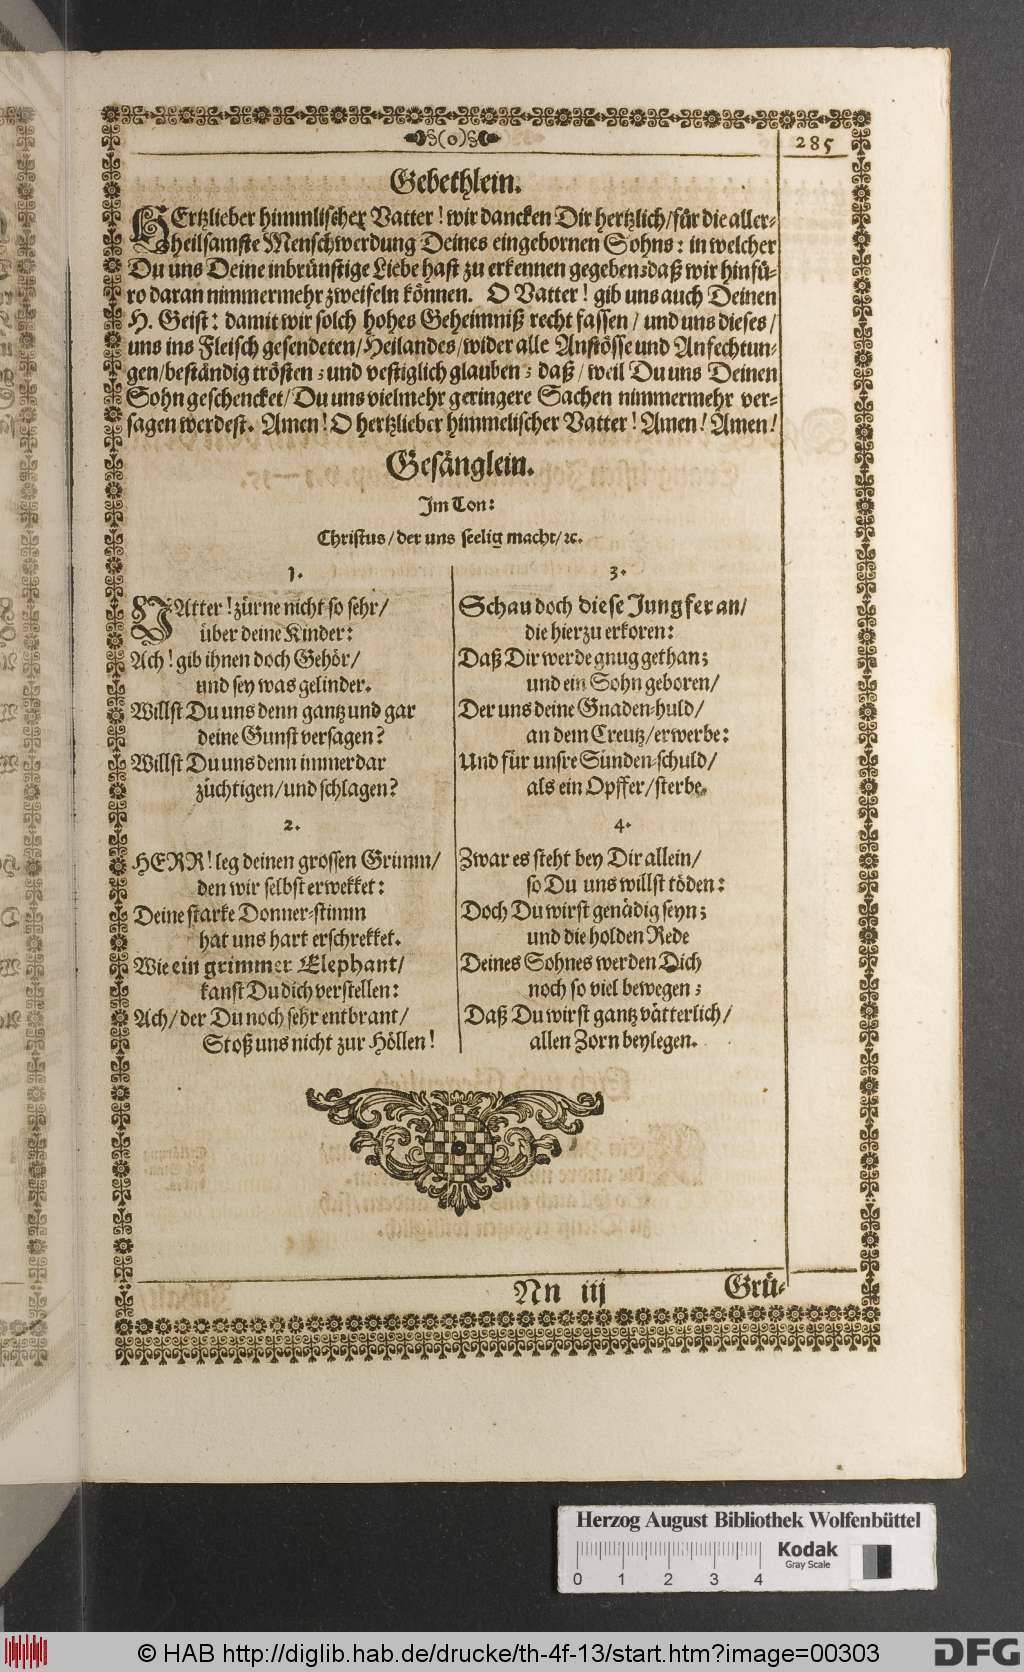 (o)
285
Gebethlein.
HErtzlieber himmlischer Vatter! wir dancken Dir hertzlich/für die aller-
heilsamste Menschwerdung Deines eingebornen Sohns: in welcher
Du uns Deine inbrünstige Liebe hast zu erkennen gegeben; daß wir hinfü-
ro daran nimmermehr zweifeln können. O Vatter! gib uns auch Deinen
H. Geist: damit wir solch hohes Geheimniß recht fassen / und uns dieses/
uns ins Fleisch gesendeten/Heilandes/wider alle Anstösse und Anfechtun-
gen/beständig trösten; und vestiglich glauben; daß / weil Du uns Deinen
Sohn geschencket/Du uns vielmehr geringere Sachen nimmermehr ver-
sagen werdest. Amen! O hertzlieber himmelischer Vatter! Amen! Amen!
Gesänglein.
Im Ton:
Christus/der uns seelig macht/ꝛc.
1.
VAtter! zürne nicht so sehr/
über deine Kinder:
Ach! gib ihnen doch Gehör/
und sey was gelinder.
Willst Du uns denn gantz und gar
deine Gunst versagen?
Willst Du uns denn immerdar
züchtigen/und schlagen?
2.
HERR! leg deinen grossen Grimm/
den wir selbst erwekket:
Deine starke Donner-stimm
hat uns hart erschrekket.
Wie ein grimmer Elephant/
kanst Du dich verstellen:
Ach/der Du noch sehr entbrant/
Stoß uns nicht zur Höllen!
3.
Schau doch diese Jungfer an/
die hierzu erkoren:
Daß Dir werde gnug gethan;
und ein Sohn geboren/
Der uns deine Gnaden-huld/
an dem Creutz/erwerbe:
Und für unsre Sünden-schuld/
als ein Opffer/sterbe.
4.
Zwar es steht bey Dir allein/
so Du uns willst töden:
Doch Du wirst genädig seyn;
und die holden Rede
Deines Sohnes werden Dich
noch so viel bewegen;
Daß Du wirst gantz vätterlich/
allen Zorn beylegen.
Nn iij
Grü-
Herzog August Bibliothek Wolfenbüttel
Kodak
Gray Scale
0 1 2 3 4
© HAB http://diglib.hab.de/drucke/th-4f-13/start.htm?image=00303
DFG